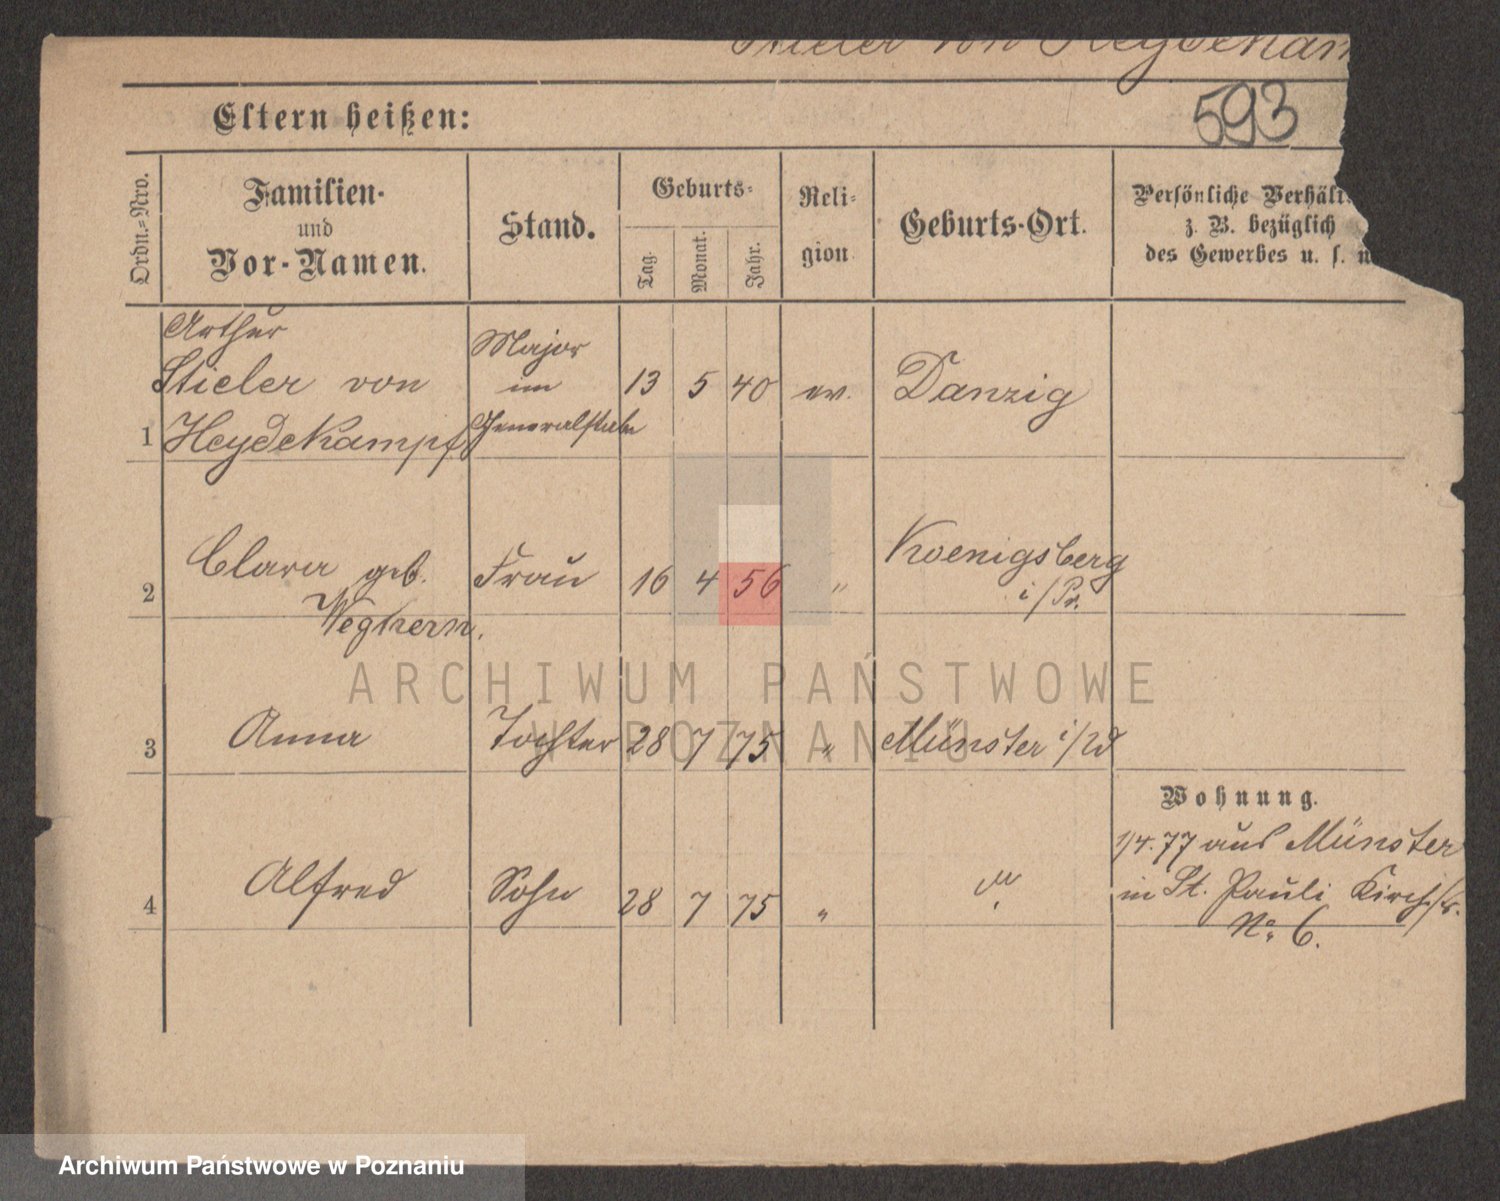 Stieler von Heydekam
593
Eltern heißen:
Ordn.-Nro.
Familien-
und
Vor-Namen.
Stand.
Geburts-
Tag.
Monat.
Jahr.
Reli-
gion
Geburts-Ort.
Persönliche Verhält
z. B. bezüglich
des Gewerbes u. s.
1 Arthur
Stieler von
Heydekampf
Major
im
Generalstabe
13 5 40 ev. Danzig
2 Clara geb.
Weghern.
Frau 16 4 56 " Koenigsberg
i/Pr.
3 Anna Tochter 28 7 75 " Münster i/W
4 Alfred Sohn 28 7 75 " "
Wohnung.
1/4.77 aus Münster
in St. Pauli Kirchstr.
No 6.
ARCHIWUM PAŃSTWOWE
W POZNANIU
Archiwum Państwowe w Poznaniu